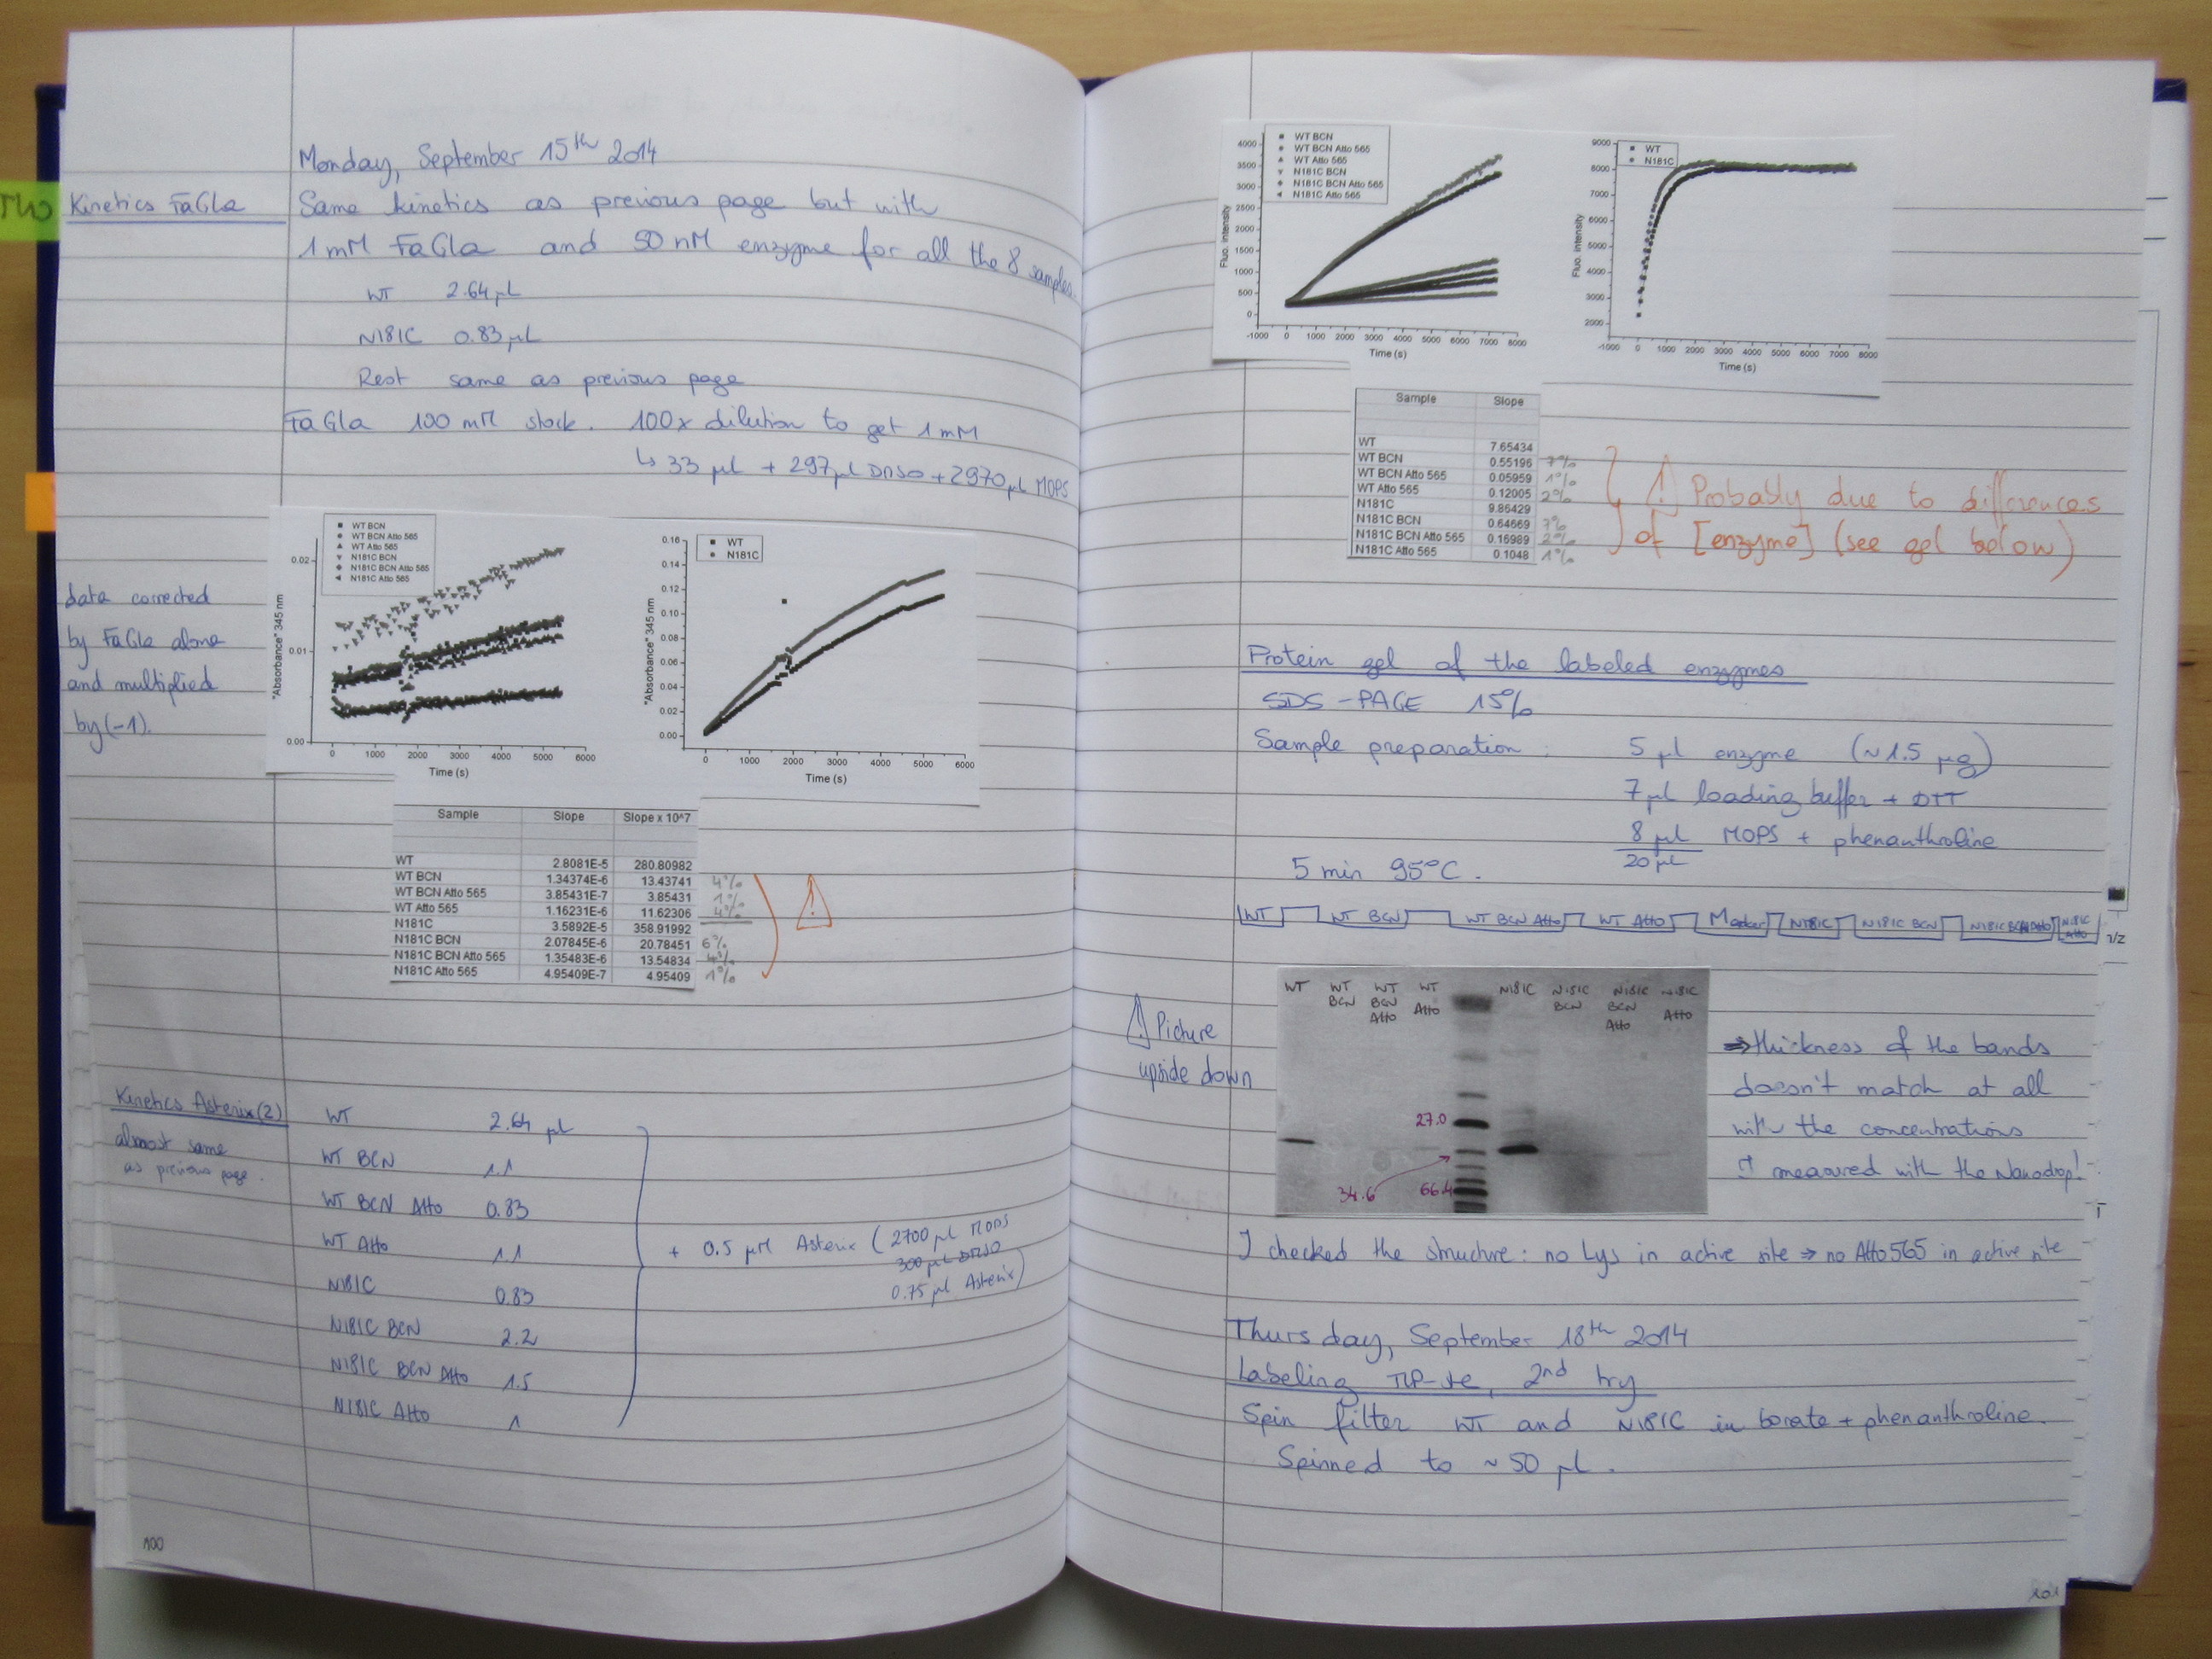 Monday, September 15th 2014
Kinetics FaGla
Same kinetics as previous page but with
1 mM FaGla and 50 nM enzyme for all the 8 samples.
WT 2.64 µL
N181C 0.83 µL
Rest same as previous page
FaGla 100 mM stock. 100x dilution to get 1 mM
↳ 33 µl + 297 µl DMSO + 2970 µl MOPS
data corrected
by FaGla alone
and multiplied
by (-1).
WT BCN
WT BCN Atto 565
WT Atto 565
N181C BCN
N181C BCN Atto 565
N181C Atto 565
"Absorbance" 345 nm
0.02
0.01
0.00
0 1000 2000 3000 4000 5000 6000
Time (s)
WT
N181C
"Absorbance" 345 nm
0.16
0.14
0.12
0.10
0.08
0.06
0.04
0.02
0.00
0 1000 2000 3000 4000 5000 6000
Time (s)
Sample Slope Slope x 10^7
WT 2.8081E-5 280.80982
WT BCN 1.34374E-6 13.43741 4%
WT BCN Atto 565 3.85431E-7 3.85431 1%
WT Atto 565 1.16231E-6 11.62306 4%
N181C 3.5892E-5 358.91992
N181C BCN 2.07845E-6 20.78451 6%
N181C BCN Atto 565 1.35483E-6 13.54834 4%
N181C Atto 565 4.95409E-7 4.95409 1%
!
Kinetics Asterix (2)
almost same
as previous page.
WT 2.64 µl
WT BCN 1.1
WT BCN Atto 0.83
WT Atto 1.1
N181C 0.83
N181C BCN 2.2
N181C BCN Atto 1.5
N181C Atto 1
+ 0.5 µM Asterix (2700 µl MOPS
300 µl DMSO
0.75 µl Asterix)
100
WT BCN
WT BCN Atto 565
WT Atto 565
N181C BCN
N181C BCN Atto 565
N181C Atto 565
Fluo. intensity
4000
3500
3000
2500
2000
1500
1000
500
0
-1000 0 1000 2000 3000 4000 5000 6000 7000 8000
Time (s)
WT
N181C
Fluo. intensity
9000
8000
7000
6000
5000
4000
3000
2000
-1000 0 1000 2000 3000 4000 5000 6000 7000 8000
Time (s)
Sample Slope
WT 7.65434
WT BCN 0.55196 7%
WT BCN Atto 565 0.05959 1%
WT Atto 565 0.12005 2%
N181C 9.86429
N181C BCN 0.64669 7%
N181C BCN Atto 565 0.16989 2%
N181C Atto 565 0.1048 1%
! Probably due to differences
of [enzyme] (see gel below)
Protein gel of the labeled enzymes
SDS-PAGE 15%
Sample preparation: 5 µl enzyme (~1.5 µg)
7 µl loading buffer + DTT
8 µl MOPS + phenanthroline
20 µl
5 min 95°C.
WT WT BCN WT BCN Atto WT Atto Marker N181C N181C BCN N181C BCN Atto N181C Atto
! Picture
upside down
WT WT BCN WT BCN Atto WT Atto N181C N181C BCN N181C BCN Atto N181C Atto
27.0
34.6
66.4
⇒ thickness of the bands
doesn't match at all
with the concentrations
I measured with the Nanodrop!
I checked the structure: no Lys in active site ⇒ no Atto 565 in active site
Thursday, September 18th 2014
Labeling , 2nd try
Spin filter WT and N181C in borate + phenanthroline.
Spinned to ~ 50 µl.
101